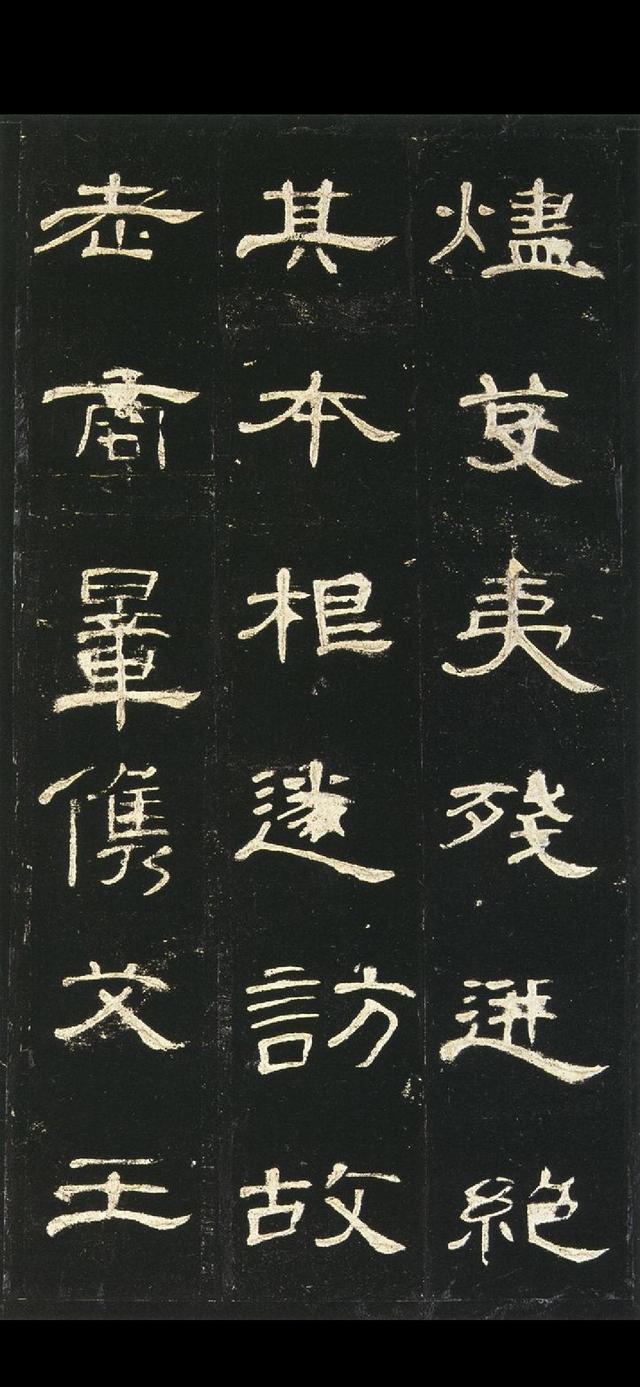 燼芟夷殘迸絶
其本根遂訪故
老商量儁艾王